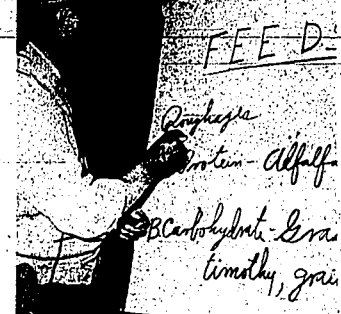 FEED-
Roughages
Protein - Alfalfa
B. Carbohydrate - Gras
timothy, grai